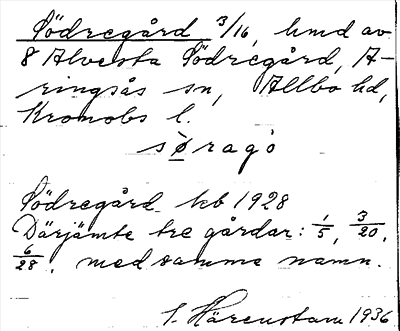 Södregård 3/16, hmd av
8 Alvesta Södregård, A-
ringsås sn, Allbo hd,
Kronobs l.
sø̀ragò
Södregård kb 1928
Därjämte tre gårdar: 1/5, 3/20,
6/28, med samma namn.
S. Härenstam 1936